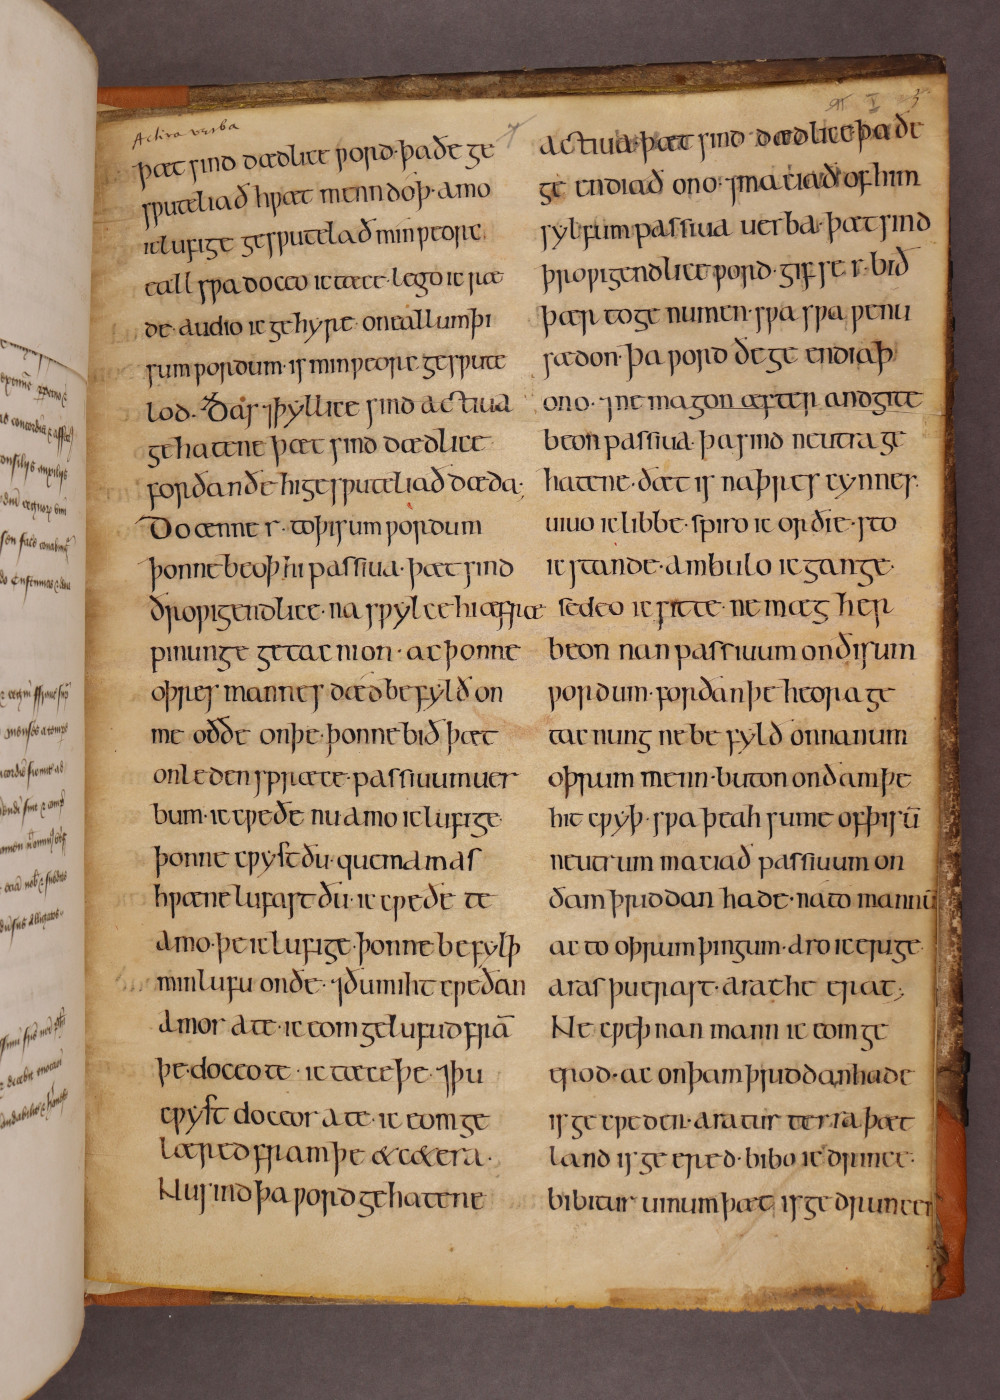 Activa verba
þæt sind dædlice ƿord· þa ðe ge
sputeliað hƿæt menn doþ· amo
ic lufige gesputelað min ƿeorc
eall sƿa docco ic tæce· lego ic ræ
de· audio ic gehyre· on eallum þi
sum ƿordum· is min ƿeorc gespute
lod· Ðas ⁊ þyllice sind actiua
gehatene þæt sind dædlice
forðan ðe hi gesputeliað dæda;
Do ænne r· to þisum ƿordum
þonne beoþ hi passiua· þæt sind
ðroƿigendlice· na sƿylce hi æfræ
ƿinunge getacnion· ac þonne
oþres mannes dæd befylð on
me oððe on þe· þonne bið þæt
on leden spræce· passiuum uer
bum· ic cƿeðe nu amo ic lufige
þonne cƿyst ðu· quem amas
hƿæne lufast ðu· ic cƿeðe te
amo· þe ic lufige· þonne befylþ
min lufu on ðe· ⁊ ðu miht cƿeðan
amor a te· ic eom gelufud frā
þe· docco te· ic tæce þe· ⁊ þu
cƿyst doccor a te· ic eom ge
læred fram þe & cetera·
Nu sind þa ƿord gehatene
actiua· þæt sind dædlice þa ðe
ge endiað on o· ⁊ maciað of him
sylfum passiua uerba· þæt sind
þroƿigendlice ƿord· gif se r· bið
þær to genumen· sƿa sƿa ƿe nu
sædon· þa ƿord ðe ge endiaþ
on o· ⁊ ne magon æfter andgite
beon passiua· þa sind neutra ge
hatene· ðæt is naþres cynnes·
uiuo ic libbe· spiro ic orðie· sto
ic stande· ambulo ic gange·
sedeo ic sitte· ne mæg her
beon nan passiuum on ðisum
ƿordum· forðan þe heora ge
tacnung ne befylð on nanum
oþrum menn· buton on ðam þe
hit cƿyþ· sƿa þeah sume of þisū
neutrum maciað passiuum on
ðam þriddan hade· na to mannū
ac to oþrum þingum· aro ic erige
aras þu erast· arat he erat;
Ne cƿeþ nan mann ic eom ge
erod· ac on þam þriddan hade
is gecƿeden· aratur terra þæt
land is geered· bibo ic drince·
bibitur uinum þæt is gedruncen